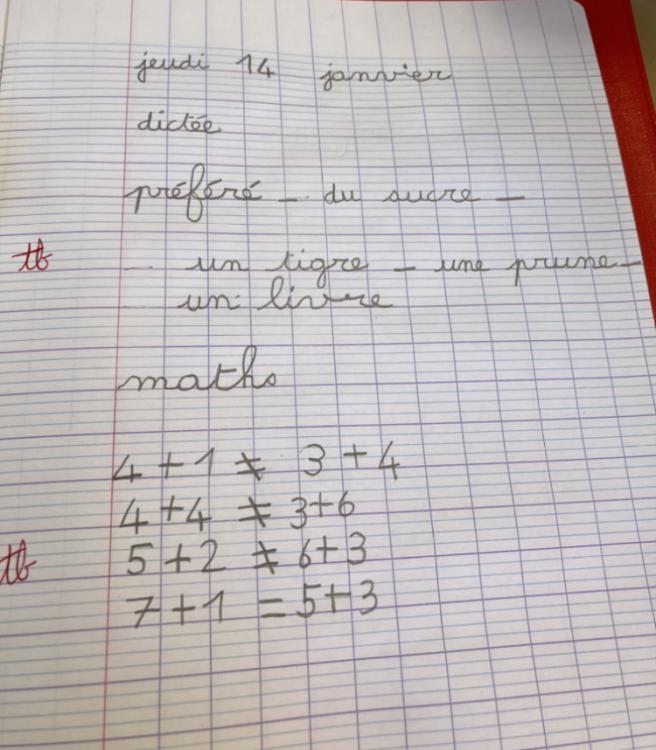 jeudi 14 janvier
dictée
préféré - du sucre -
tb
un tigre - une prune -
un livre
maths
4 + 1 ≠ 3 + 4
4 + 4 ≠ 3 + 6
tb
5 + 2 ≠ 6 + 3
7 + 1 = 5 + 3